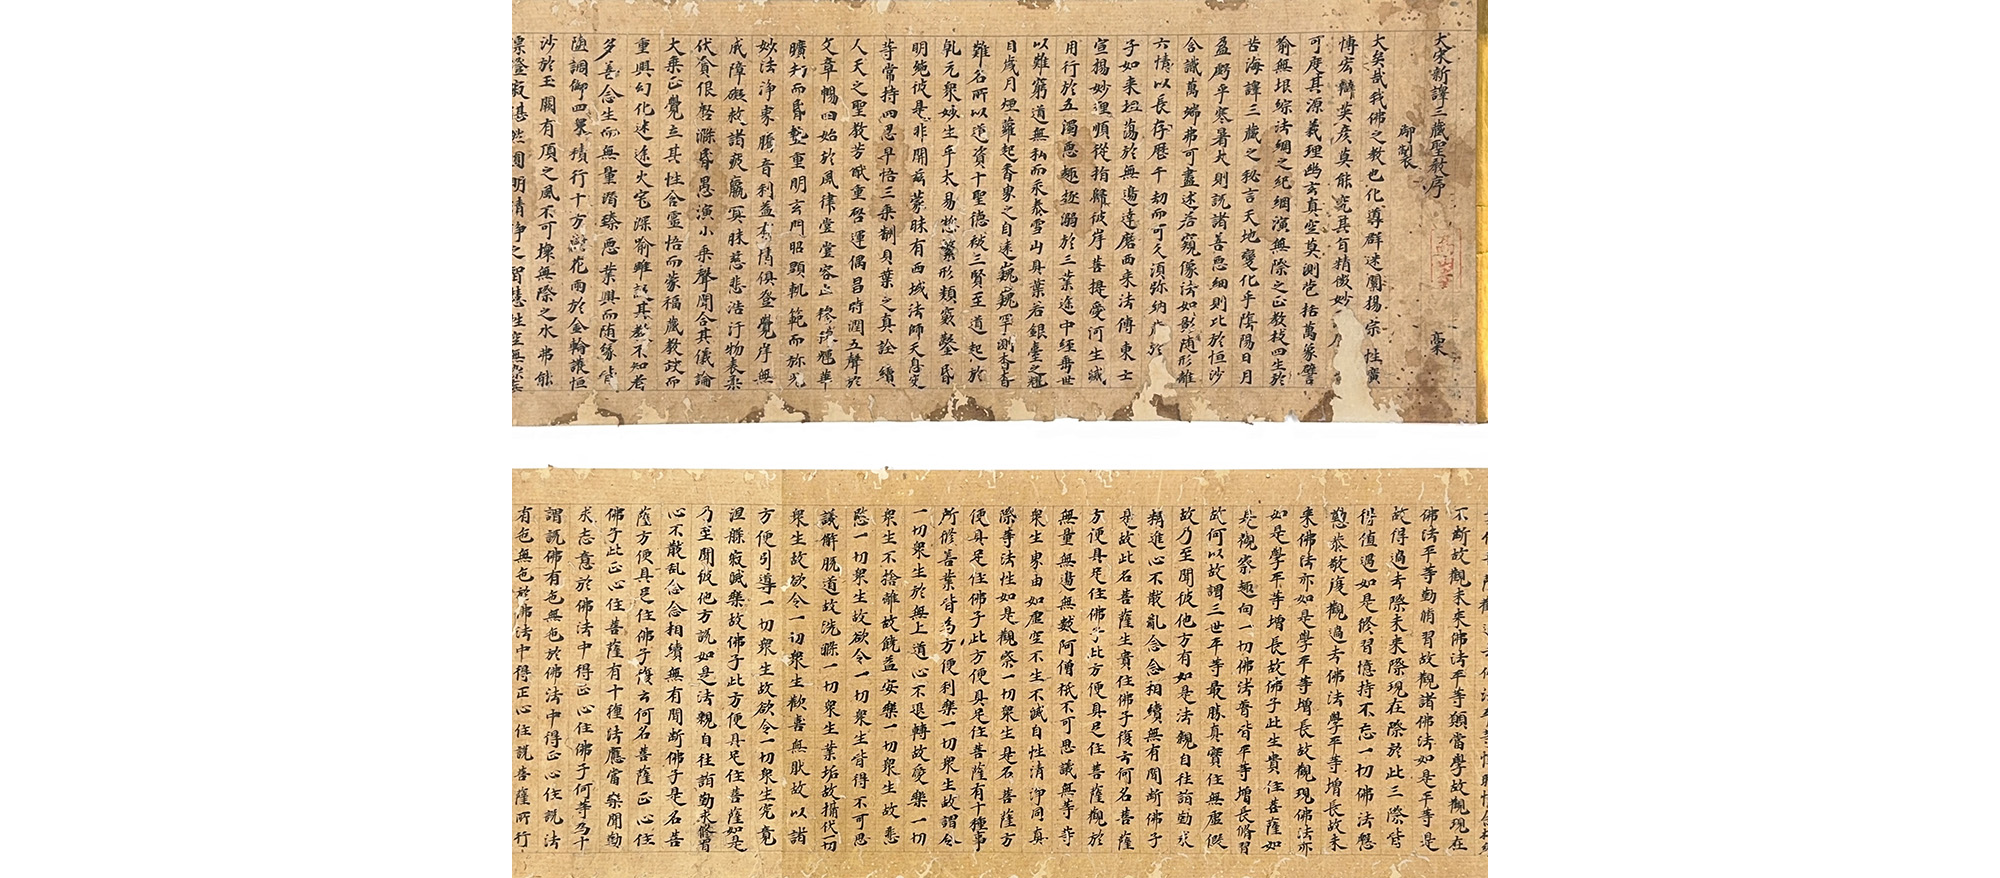 大宋新譯三藏聖教序
御製
大矣哉我佛之教也化導群迷闡揚宗性廣
博宏辯英彦莫能究其旨精微妙
可度其源義理幽玄真空莫測包括萬象譬
喻無垠綜法網之紀綱演無際之正教拔四生於
苦海譯三藏之秘言天地變化乎陰陽日月
盈虧乎寒暑大則說諸善惡細則比於恒沙
含識萬端弗可盡述若窺像法如影随形離
六情以長存歷千劫而可久須弥納於
子如来坦蕩於無邊達磨西来法傳東土
宣揚妙理順從指歸彼岸菩提愛河生滅
用行於五濁惡趣拯溺於三業途中經垂世
以難窮道無私而永泰雪山貝葉若銀臺之耀
目歲月煙蘿起香象之自遠巍巍罕測杳杳
難名所以道資十聖德被三賢至道起於
乹元衆妙生乎太易惣繁形類竅鑿昏
明絶彼是非開茲蒙昧有西域法師天息灾
等常持四忍早悟三乗翻貝葉之真詮續
人天之聖教芳猷重啓運偶昌時潤五聲於
文章暢四始於風律堂堂容止穆穆輝華
曠劫而昏蟄重明玄門昭顯軌範而弥光
妙法淨東騰音利益有情俱登覺岸無
成障礙救諸疲羸冥昧慈悲浩汗物表柔
伏貪佷啓滌昏愚演小乗聲聞合其儀論
大乗正覺立其性含靈悟而蒙福藏教設而
重興幻化迷途火宅深喻雖設其教不知者
多善念生而無量潛臻惡業興而随緣皆
墮調御四衆積行十方花雨於金輪護恒
沙於玉闕有頂之風不可壞無際之水弗能
漂澄寂湛然圓明清淨之智慧性空無染妄
不斷故觀未来佛法平等類當學故觀現在
佛法平等勤脩習故觀諸佛法如是平等是
故得過去際未来際現在際於此三際皆
得值遇如是修習憶持不忘一切佛法懃
懃恭敬復觀過去佛法學平等增長故未
来佛法亦如是學平等增長故觀現佛法亦
如是學平等增長故佛子此生貴住菩薩如
是觀察趣向一切佛法普皆平等增長脩習
故何以故謂三世平等最勝真實住無虛假
故乃至聞彼他方有如是法親自往詣勤求
精進心不散亂念念相續無有間斷佛子
是故此名菩薩生貴住佛子復云何名菩薩
方便具足住佛子此方便具足住菩薩觀於
無量無邊無數阿僧祇不可思議無等非
衆生界由如虛空不生不滅自性清淨同真
際等法性如是觀察一切衆生是名菩薩方
便具足住佛子此方便具足住菩薩有十種事
所修善業皆為方便利樂一切衆生故謂令
一切衆生於無上道心不退轉故愛樂一切
衆生不捨離故饒益安樂一切衆生故悲
愍一切衆生故欲令一切衆生皆得不可思
議解脱道故洗滌一切衆生業垢故摧伏一切
衆生故欲令一切衆生歡喜無猒故以諸
方便引導一切衆生故欲令一切衆生究竟
涅槃寂滅樂故佛子此方便具足住菩薩如是
乃至聞彼他方說如是法親自往詣勤求修習
心不散乱念念相續無有間断佛子是名菩
薩方便具足住佛子復云何名菩薩正心住
佛子此正心住菩薩有十種法應當樂聞勤
求志意於佛法中得正心住佛子何等為十
謂說佛有色無色於佛法中得正心住說法
有色無色於佛法中得正心住說菩薩所行